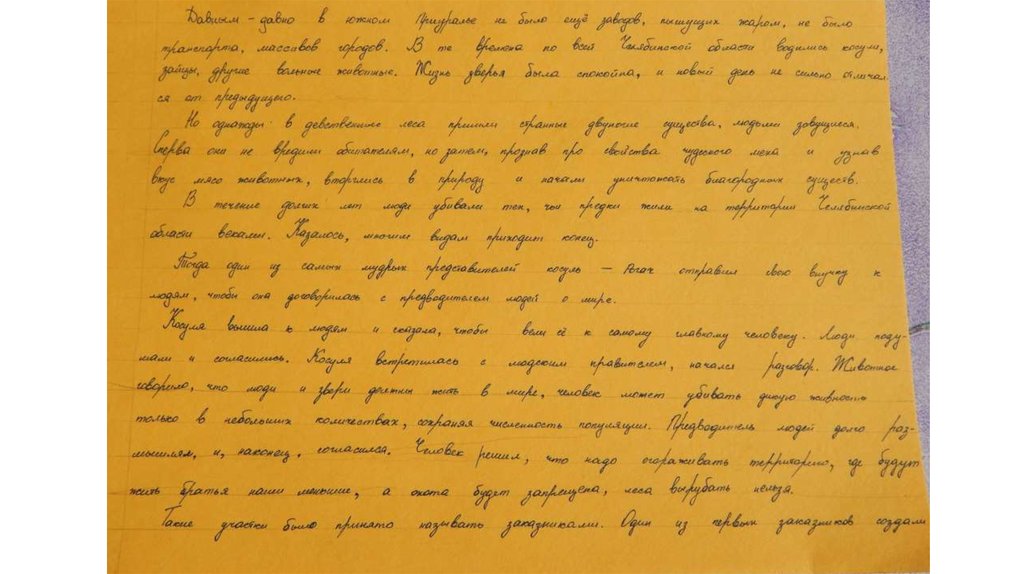 Давным-давно в южном Приуралье не было ещё заводов, пышущих жаром, не было
транспорта, массивов городов. В те времена по всей Челябинской области водились косули,
зайцы, другие вольные животные. Жизнь зверья была спокойна, и новый день не сильно отличал
ся от предыдущего.
Но однажды в девственные леса пришли странные двуногие существа, людьми зовущиеся.
Сперва они не вредили обитателям, но затем, прознав про свойства чудесного меха и узнав
вкус мясо животных, вторглись в природу и начали уничтожать благородных существ.
В течение долгих лет люди убивали тех, чьи предки жили на территории Челябинской
области веками. Казалось, многим видам приходит конец.
Тогда один из самых мудрых представителей косуль — Рогач отправил свою внучку к
людям, чтобы она договорилась с предводителем людей о мире.
Косуля вышла к людям и сказала, чтобы вели её к самому главному человеку. Люди поду-
мали и согласились. Косуля встретилась с людским правителем, начался разговор. Животное
говорило, что люди и звери должны жить в мире, человек может убивать дикую живность
только в небольших количествах, сохраняя численность популяции. Предводитель людей долго раз-
мышлял, и, наконец, согласился. Человек решил, что надо огораживать территорию, где будут
жить братья наши меньшие, а охота будет запрещена, леса вырубать нельзя.
Такие участки было принято называть заказниками. Один из первых заказников создали